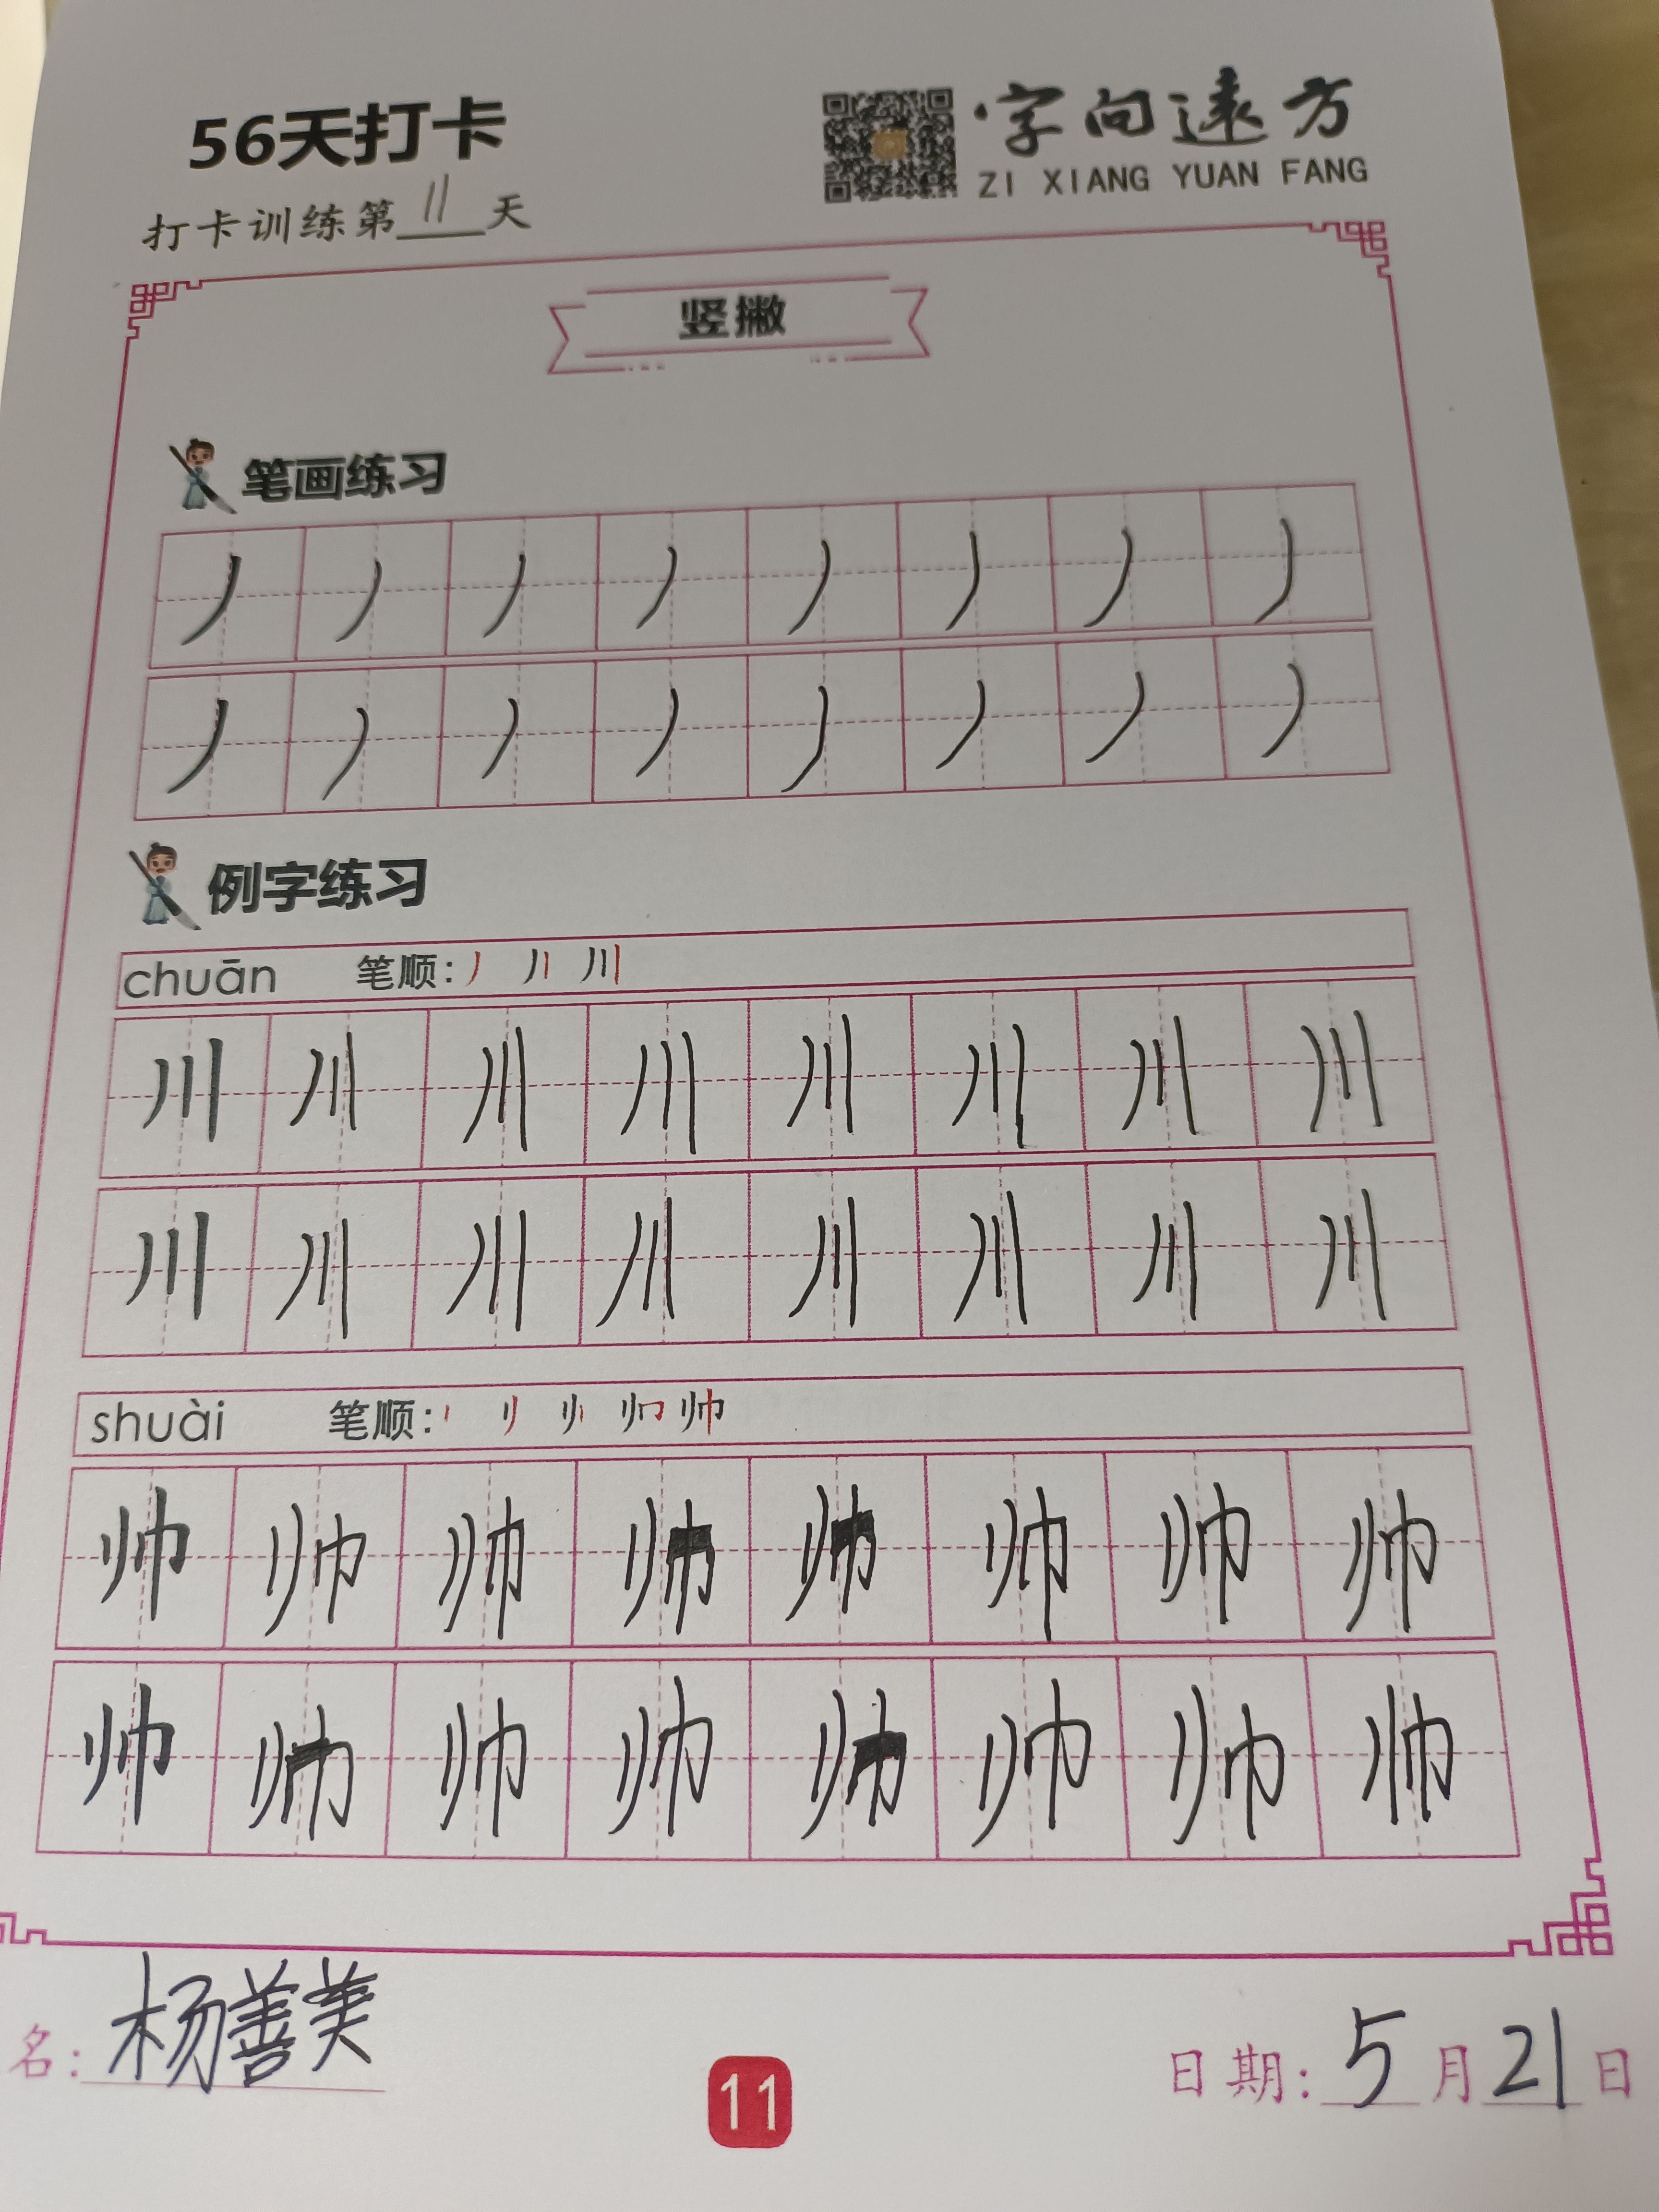 56天打卡
字向遠方
ZI XIANG YUAN FANG
打卡训练第11天
竖撇
笔画练习
丿 丿 丿 丿 丿 丿 丿 丿
丿 丿 丿 丿 丿 丿 丿 丿
例字练习
chuān 笔顺: 丿 丿丨 川
川 川 川 川 川 川 川 川
川 川 川 川 川 川 川 川
shuài 笔顺:
帅 帅 帅 帅 帅 帅 帅 帅
帅 帅 帅 帅 帅 帅 帅 帅
名: 杨善美
日期: 5月21日
11